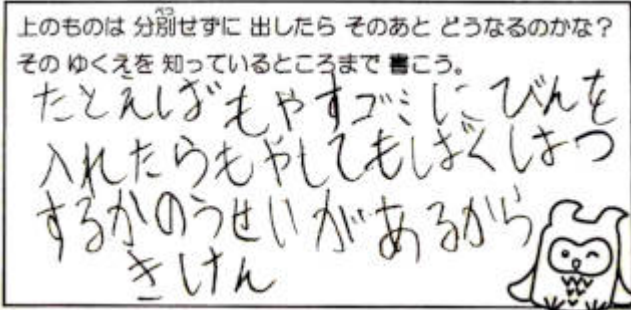 上のものは 分別せずに 出したら そのあと どうなるのかな？
その ゆくえを 知っているところまで 書こう。
たとえばもやすゴミにびんを
入れたらもやしてもばくはつ
するかのうせいがあるから
きけん